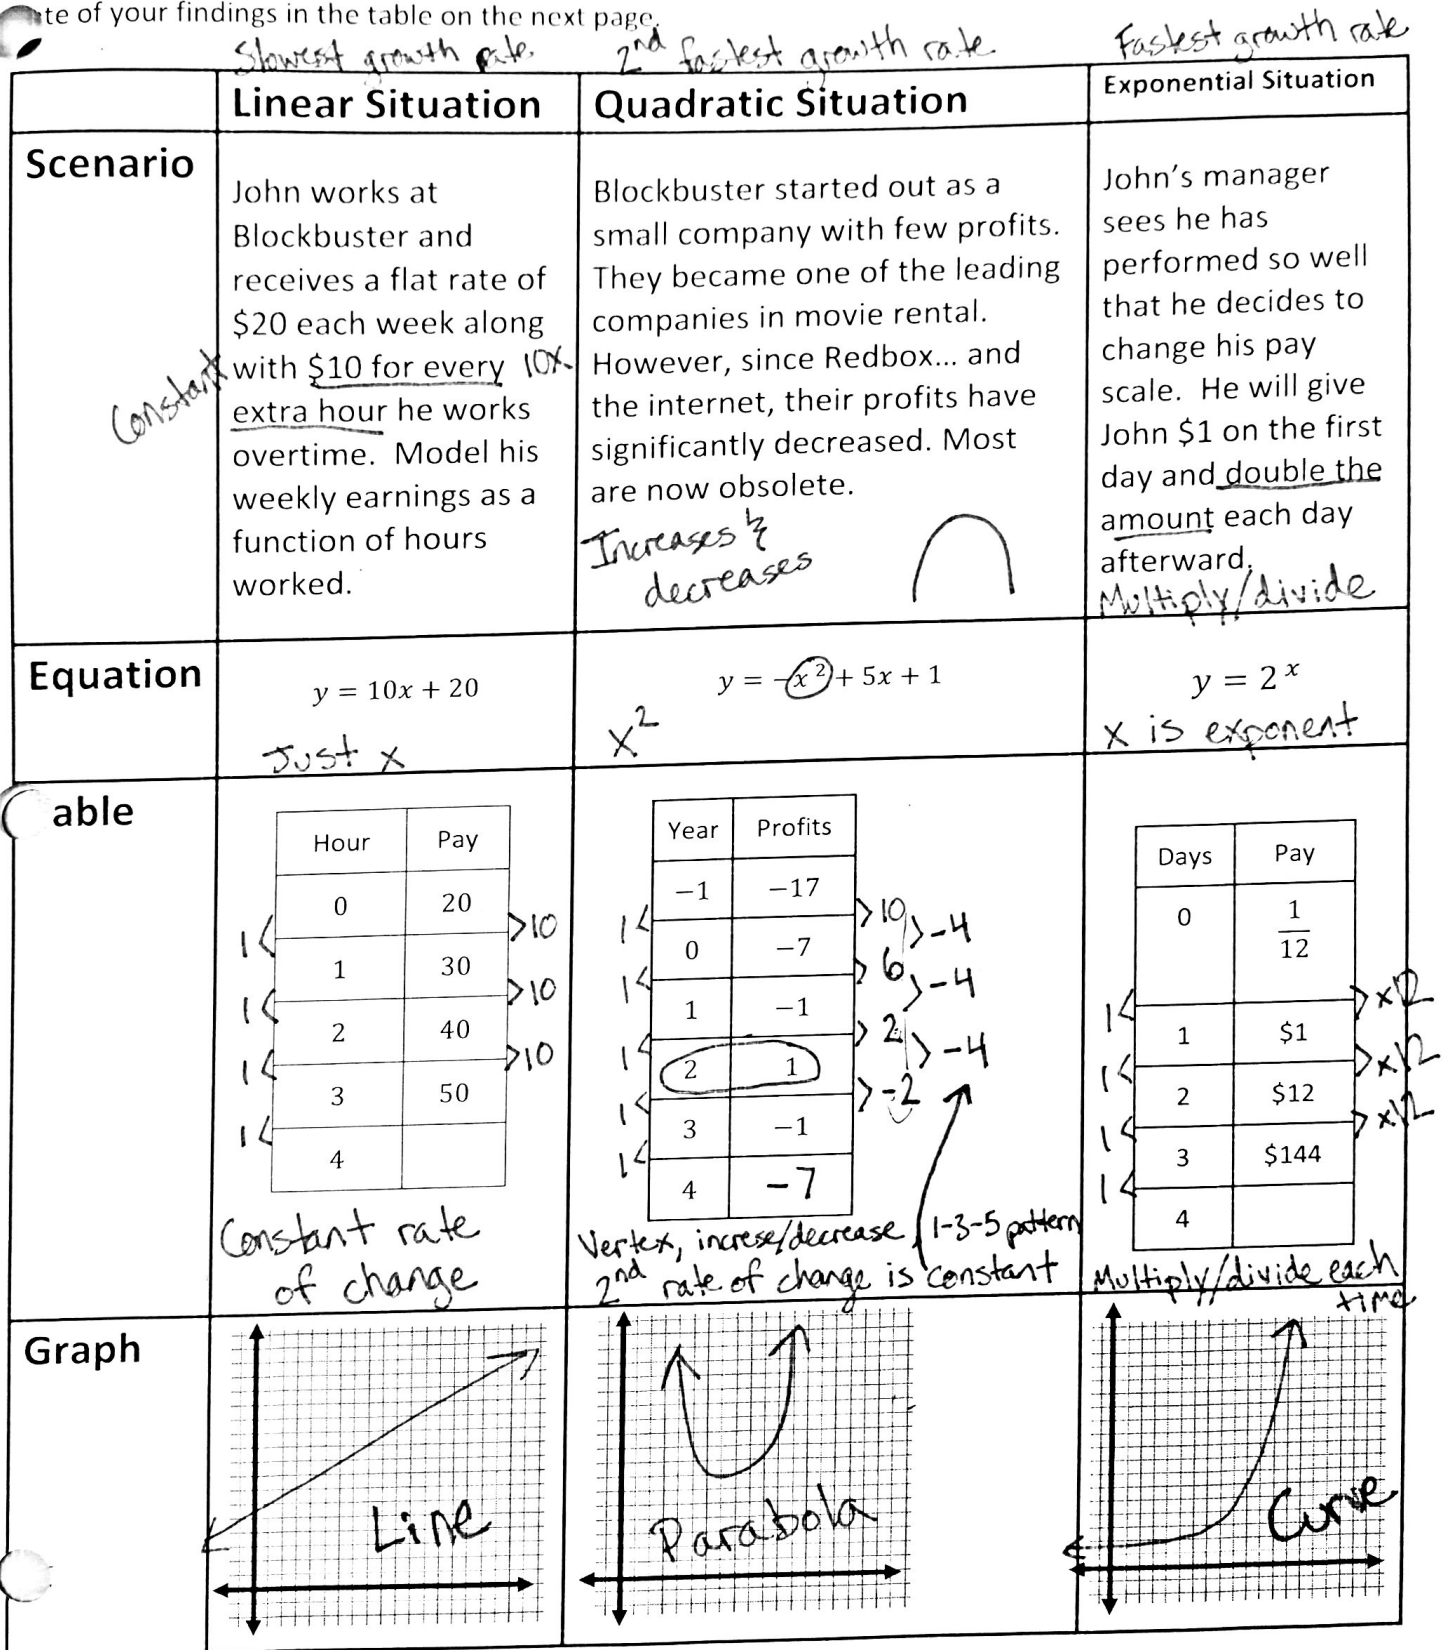 te of your findings in the table on the next page.
Slowest growth rate.
2nd fastest growth rate
Fastest growth rate
Linear Situation
Quadratic Situation
Exponential Situation
Scenario
John works at
Blockbuster and
receives a flat rate of
$20 each week along
with $10 for every 10x
extra hour he works
overtime. Model his
weekly earnings as a
function of hours
worked.
Constant
Blockbuster started out as a
small company with few profits.
They became one of the leading
companies in movie rental.
However, since Redbox... and
the internet, their profits have
significantly decreased. Most
are now obsolete.
Increases &
decreases
John's manager
sees he has
performed so well
that he decides to
change his pay
scale. He will give
John $1 on the first
day and double the
amount each day
afterward.
Multiply/divide
Equation
y = 10x + 20
Just x
y = -x² + 5x + 1
x²
y = 2ˣ
x is exponent
able
Hour Pay
0 20
1 30
2 40
3 50
4
1 >10
1 >10
1 >10
1
Constant rate
of change
Year Profits
−1 −17
0 −7
1 −1
2 1
3 −1
4 -7
1 >10 >-4
1 >6 >-4
1 >2 >-4
1 >-2
1
Vertex, increse/decrease, 1-3-5 pattern
2nd rate of change is constant
Days Pay
0 1/12
1 $1
2 $12
3 $144
4
1 >x12
1 >x12
1 >x12
1
Multiply/divide each
time
Graph
Line
Parabola
Curve